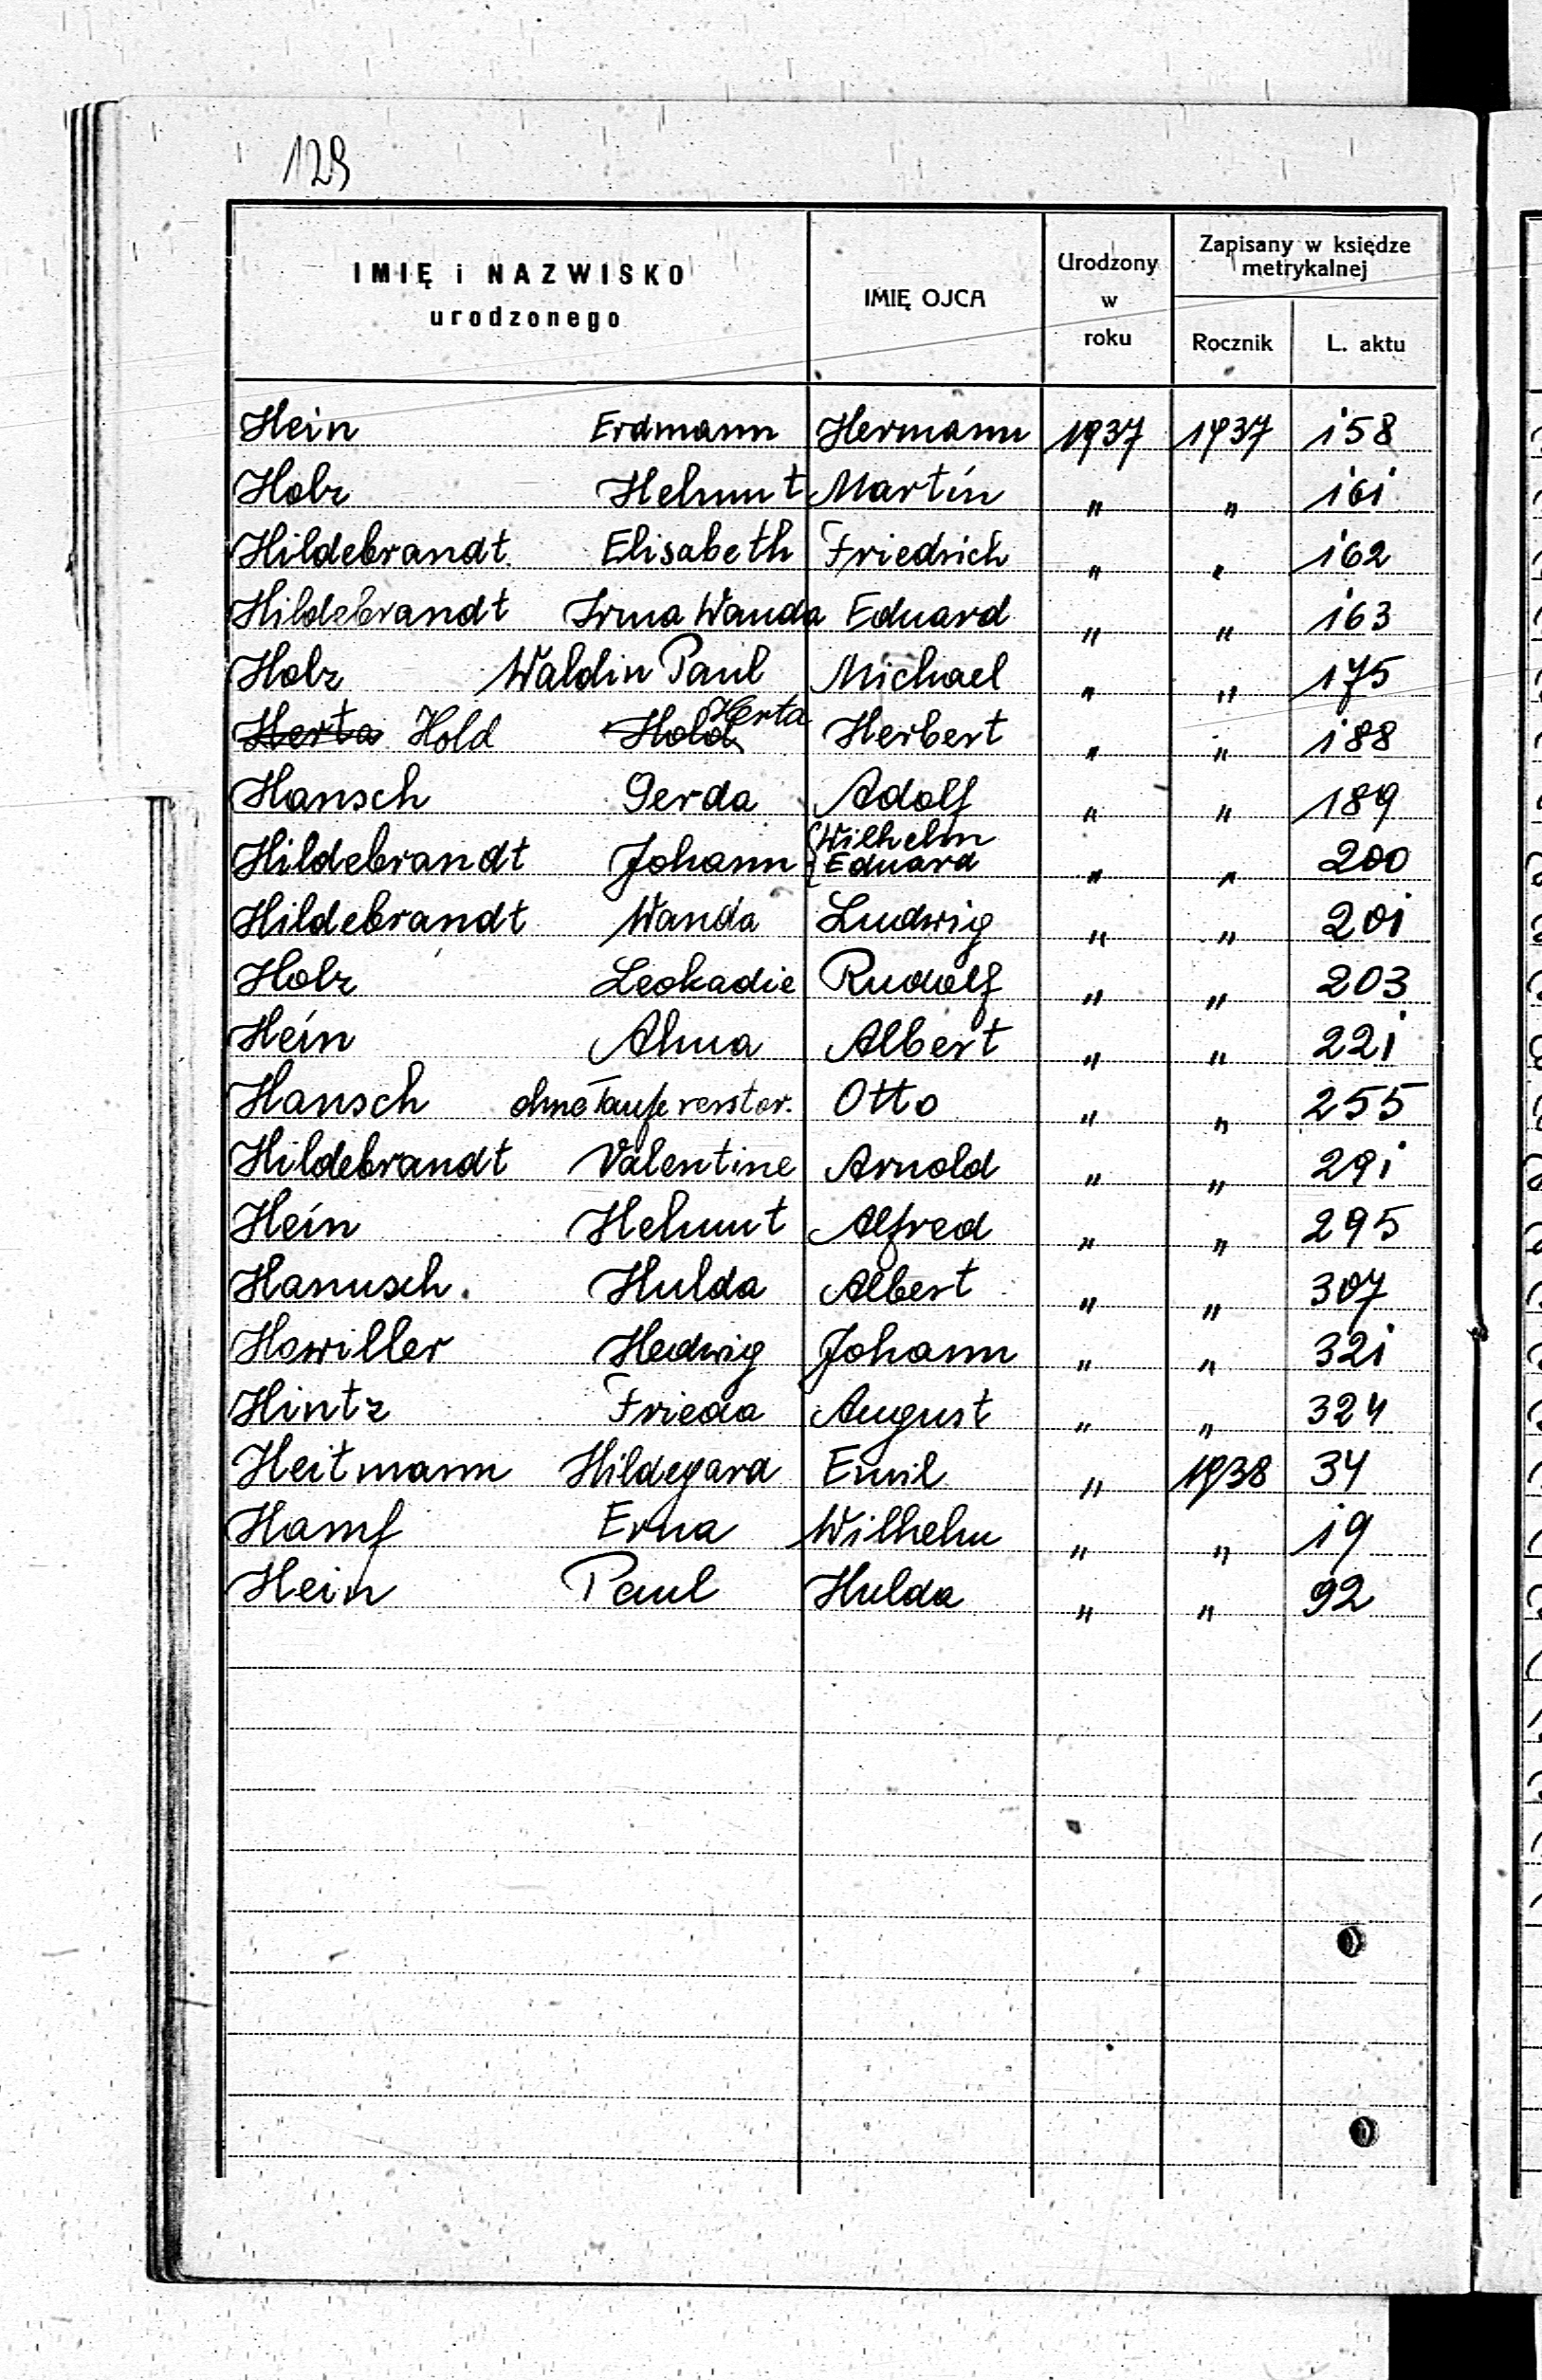 129
IMIĘ i NAZWISKO urodzonego IMIĘ OJCA Urodzony w roku Zapisany w księdze metrykalnej Rocznik L. aktu
Hein Erdmann Hermann 1937 1937 158
Holz Helmut Martin " " 161
Hildebrandt Elisabeth Friedrich " " 162
Hildebrandt Irma Wanda Eduard " " 163
Holz Waldin Paul Michael " " 175
Herta Hold Hold Herta Herbert " " 188
Hansch Gerda Adolf " " 189
Hildebrandt Johann { Wilhelm Eduard " " 200
Hildebrandt Wanda Ludwig " " 201
Holz Leokadie Rudolf " " 203
Hein Alma Albert " " 221
Hansch ohne Taufe verstor. Otto " " 255
Hildebrandt Valentine Arnold " " 291
Hein Helmut Alfred " " 295
Hanusch. Hulda Albert " " 307
Hawiller Hedwig Johann " " 321
Hintz Frieda August " " 324
Heitmann Hildegard Emil " 1938 34
Hamf Erna Wilhelm " " 19
Hein Paul Hulda " " 92